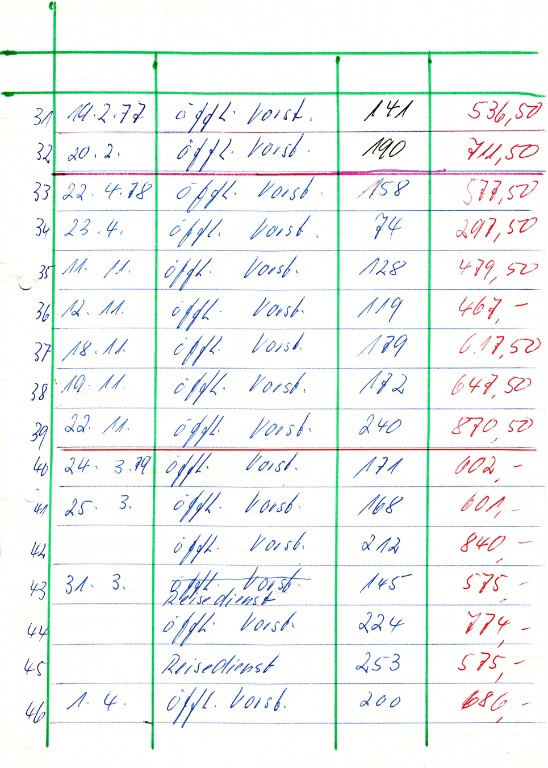 31 19.2.77 öffl. Vorst. 141 536,50
32 20.2. öffl. Vorst. 190 711,50
33 22.4.78 öffl. Vorst. 158 577,50
34 23.4. öffl. Vorst. 74 297,50
35 11.11. öffl. Vorst. 128 479,50
36 12.11. öffl. Vorst. 119 467,-
37 18.11. öffl. Vorst. 179 617,50
38 19.11. öffl. Vorst. 172 647,50
39 22.11. öffl. Vorst. 240 870,50
40 24.3.79 öffl. Vorst. 171 602,-
41 25.3. öffl. Vorst. 168 601,-
42 öffl. Vorst. 212 840,-
43 31.3. öffl. Vorst. 145 575,-
Reisedienst
44 öffl. Vorst. 224 774,-
45 Reisedienst 253 575,-
46 1.4. öffl. Vorst. 200 686,-